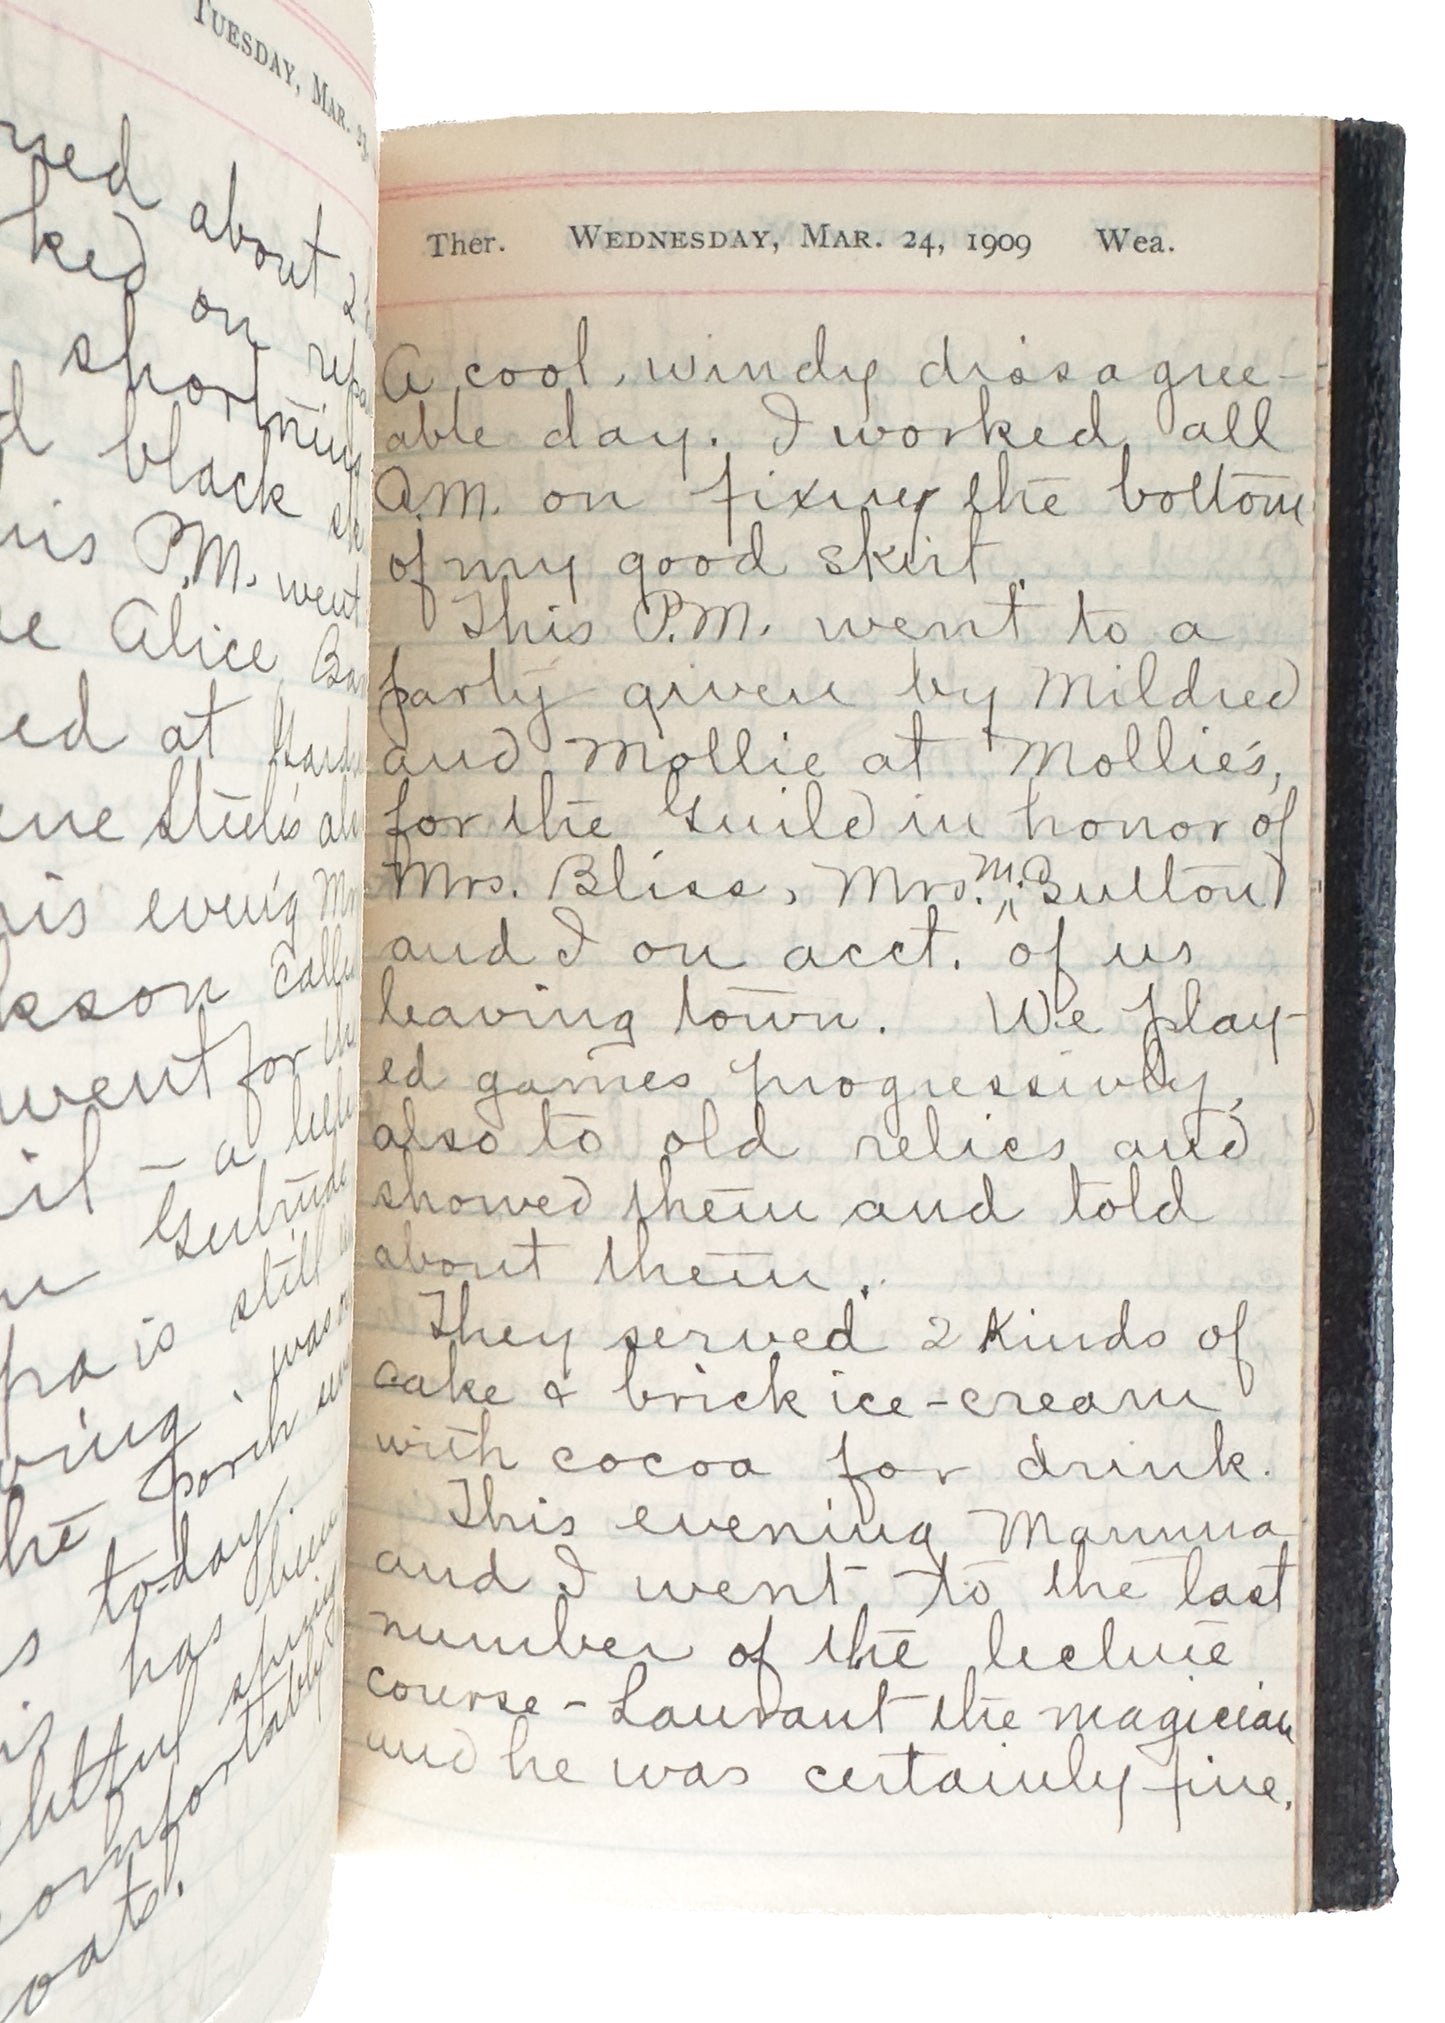 TUESDAY, MAR. 23,
about 2
on
short
black
P.M. went
Alice
at
eve'g
called
went for the
- a
Gertrude
is still
was
the porch
to-day.
has been
spring
comfortably
Ther. WEDNESDAY, MAR. 24, 1909 Wea.
A cool, windy disagree-
able day. I worked all
A.M. on fixing the bottom
of my good skirt.
This P.M. went to a
party given by Mildred
and Mollie at Mollie's,
for the Guild in honor of
Mrs. Bliss, Mrs. M. Sutton
and I on acct. of us
leaving town. We play-
ed games progressivly,
also to old relics and
showed them and told
about them.
They served 2 kinds of
cake & brick ice-cream
with cocoa for drink.
This evening Mamma
and I went to the last
number of the lecture
course - Laurant the magician
and he was certainly fine.